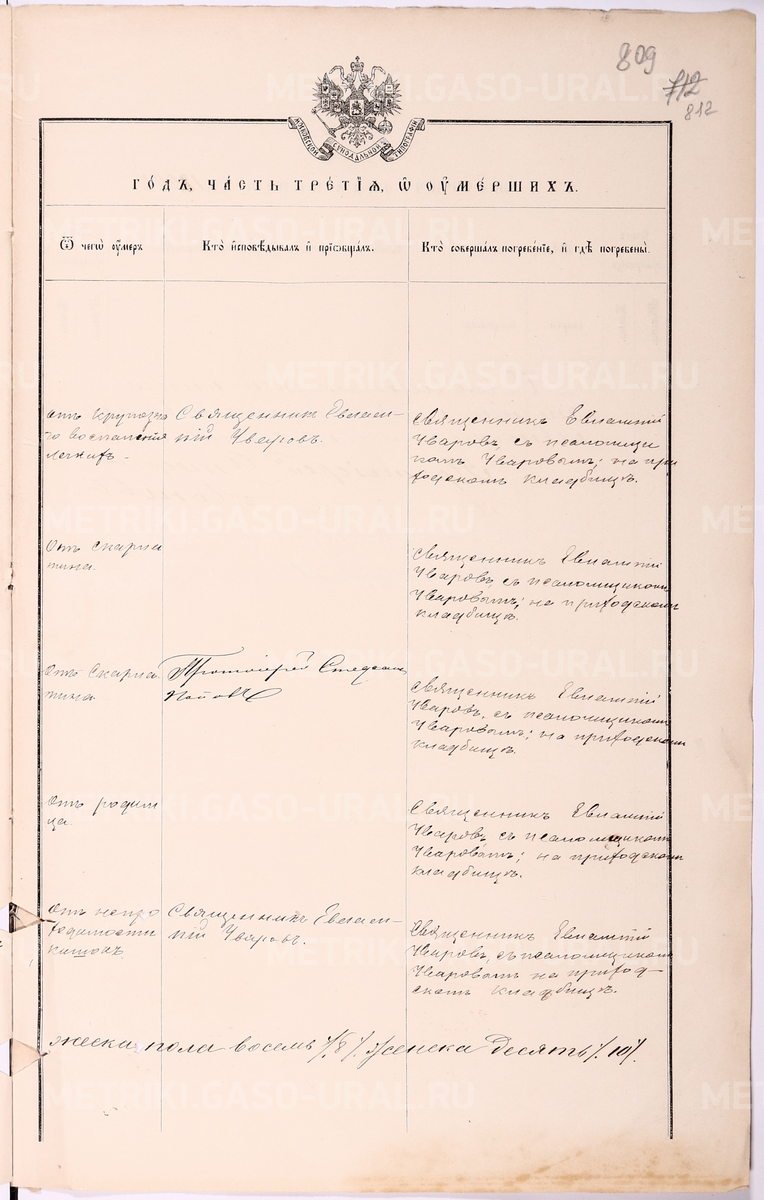 809
112
812
МОСКОВСКОЙ СѴНОДАЛЬНОЙ ТИПОГРАФІИ
ГО́ДЪ, ЧА́СТЬ ТРЕ́ТІѦ, Ѽ ОУ҆МЕ́РШИХЪ.
Ѿ чегѡ̀ оу҆́меръ
Кто̀ и҆сповѣ́дывалъ и҆ прїѡбща́лъ.
Кто̀ соверша́лъ погребе́нїе, и҆ гдѣ̀ погребены̀.
отъ крупозна
го воспаления
легкихъ
Священникъ Евлам-
пій Уваровъ.
Священникъ Евлампій
Уваровъ съ псаломщи
комъ Уваровымъ; на при
ходскомъ кладбищѣ.
Отъ скарла
тина
Священникъ Евлампій
Уваровъ съ псаломщикомъ
Уваровымъ; на приходскомъ
кладбищѣ.
Отъ скарла
тина
Протоіерей Стефанъ
Поповъ
Священникъ Евлампій
Уваровъ, съ псаломщикомъ
Уваровымъ; на приходскомъ
кладбищѣ.
Отъ родим
ца
Священникъ Евлампій
Уваровъ съ псаломщикомъ
Уваровымъ; на приходскомъ
кладбищѣ.
Отъ непро
ходимости
кишокъ
Священникъ Евлам-
пій Уваровъ.
Священникъ Евлампій
Уваровъ, съ псаломщикомъ
Уваровымъ на приход-
скомъ кладбищѣ.
жеска пола восемь /8/. женска десять /10/.
METRIKI.GASO-URAL.RU